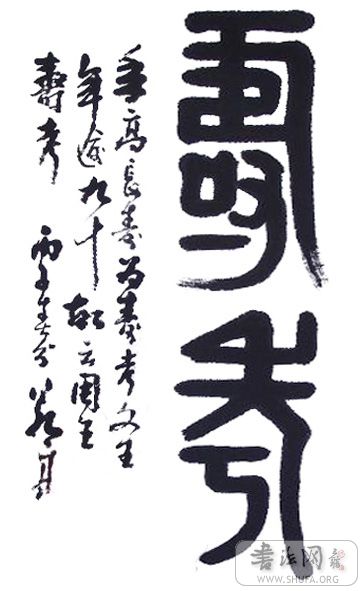 壽考
年高長壽為壽考文王
年逾九十故云周王
壽考
書法网
WWW.SHUFA.ORG